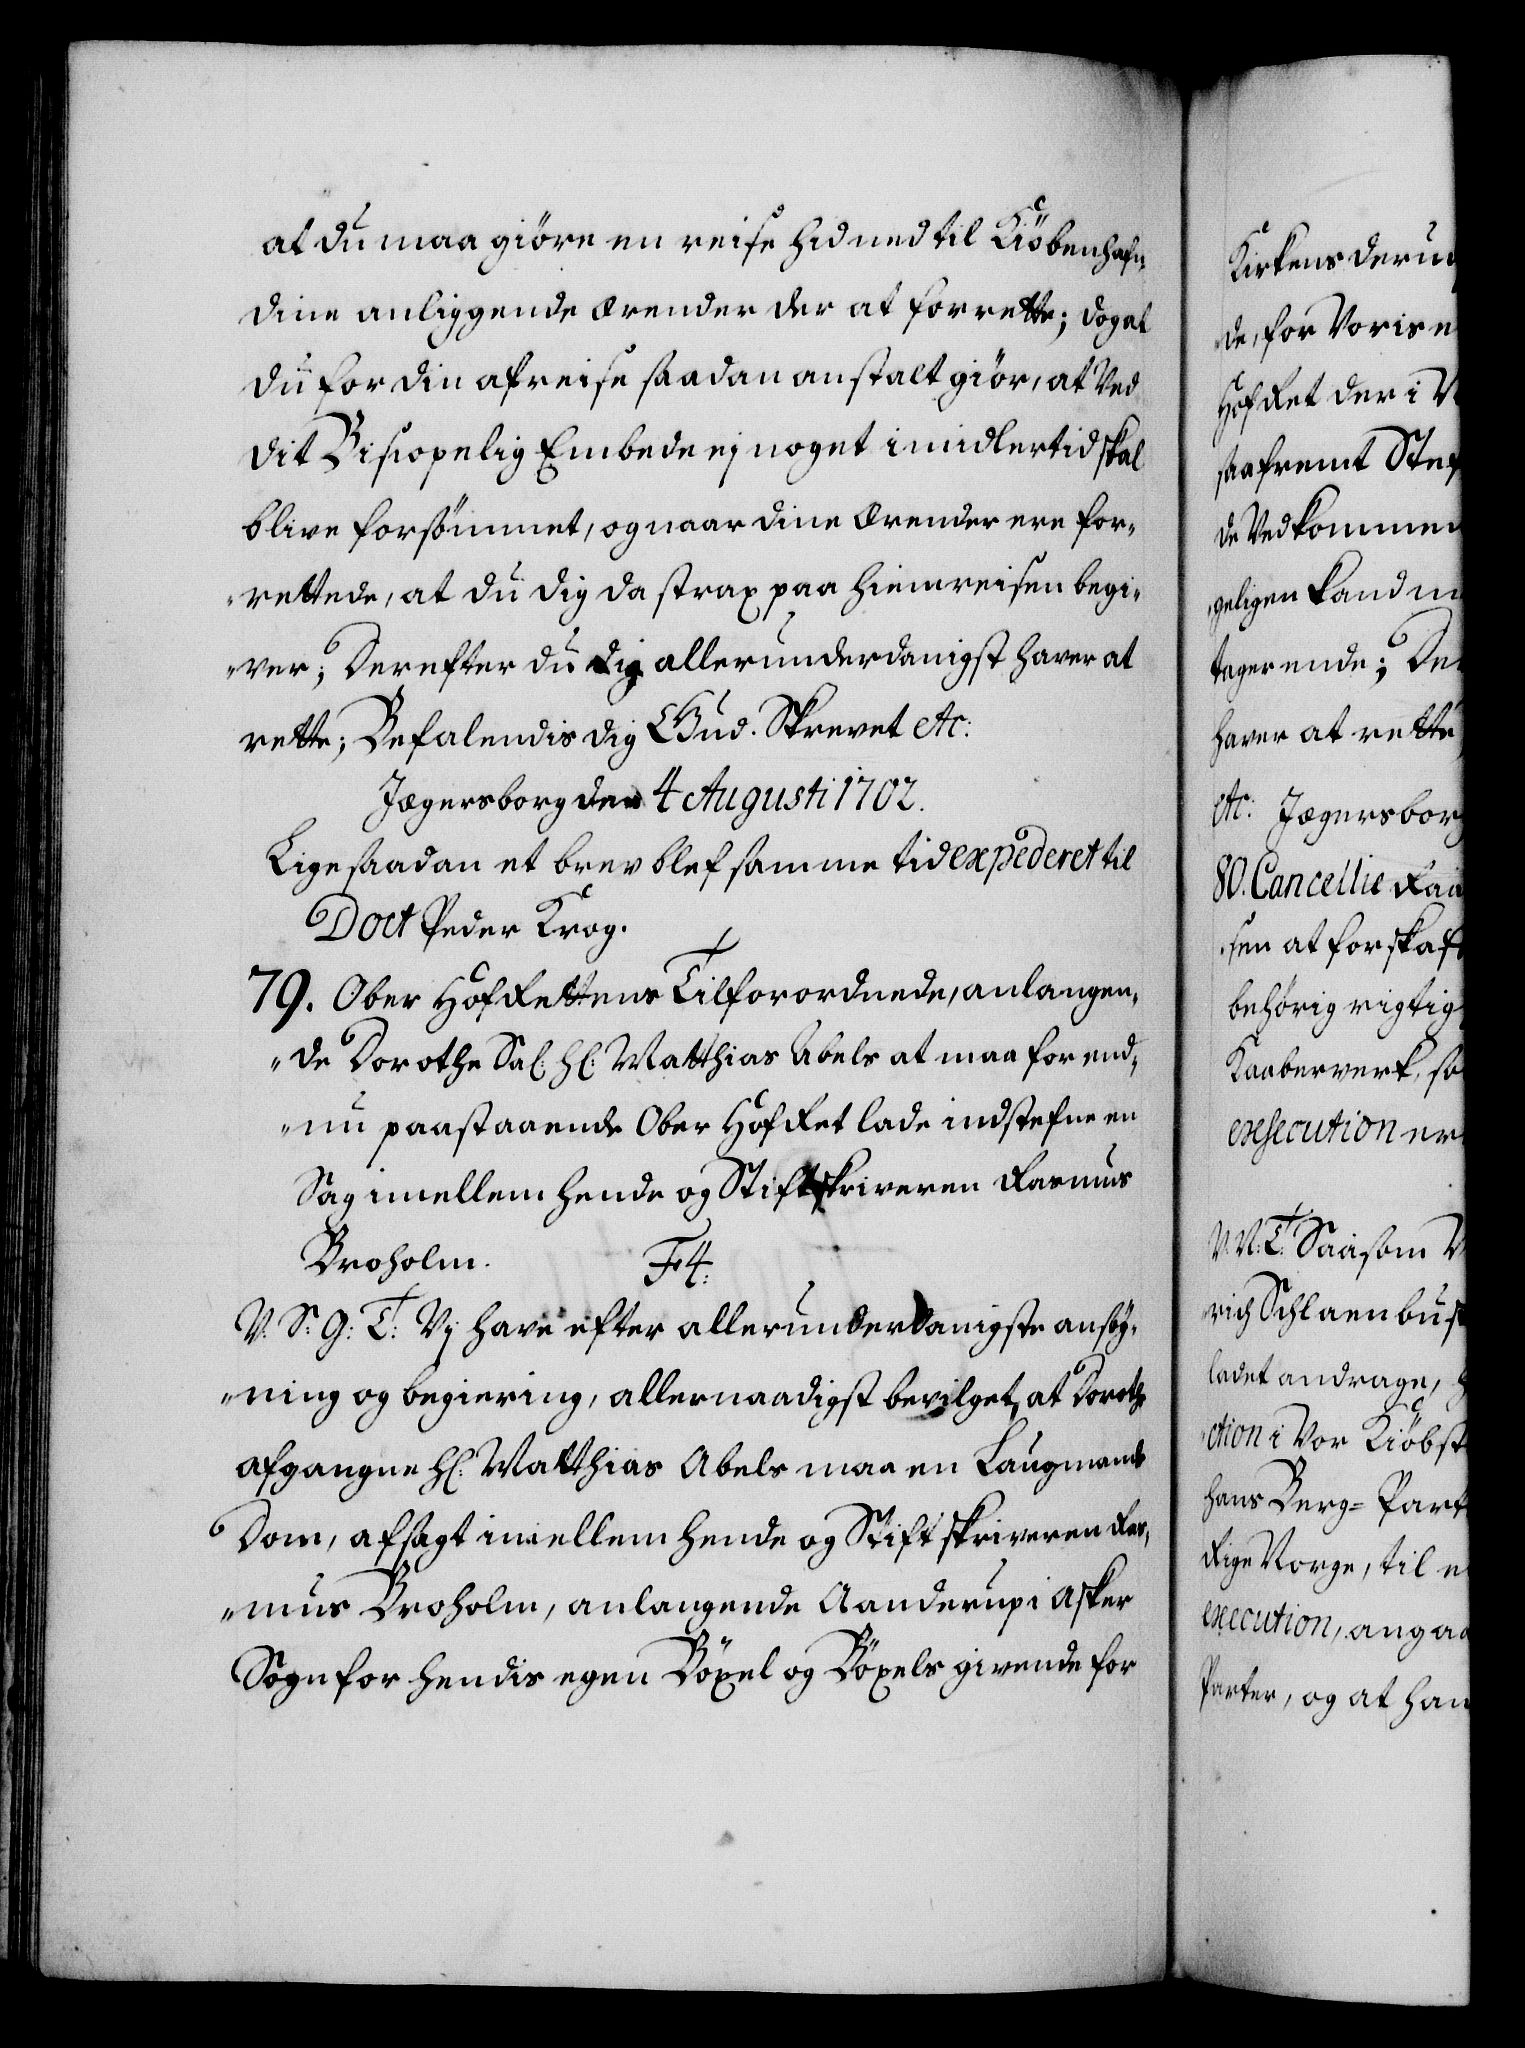 at du maa giöre en reise hid ned til Kiöbenhafn,
dine anliggende ærender der at forrette; dog at
du for din afreise saadan anstalt giör, at Ved
dit Biscopelig Embede ej noget imidlertid skal
blive forsömmet, og naar dine Ærender ere for-
rettede, at du dig da strax paa hiemreisen begi-
ver; Derefter du dig allerunderdanigst haver at
rette; Befalendis dig Gud. Skrevet etc:
Jægersborg den 4 Augusti 1702.
Lige saadan et brev blef samme tid expederet til
Doct Peder Krog.
79. Ober Hof Rettens Tilforordnede, anlangen-
de Dorothe Sal: hl: Matthias Abels at maa for end-
nu paastaaende Ober Hof Ret lade indstefne en
Sag imellem hende og Stiftskriveren Rasmus
Broholm. F4:
V: S: G: T: Vj have efter allerunderdanigste ansög-
ning og begiering, allernaadigst bevilget, at Dorothe
afgangne hl: Matthias Abels maa en Laugmands
Dom, afsagt imellem hende og Stiftskriveren Ras-
mus Broholm, anlangende Aanderup i Asker
Sogn for hendis egen Böxel og Böxels givende for
Kirkens derud
de, for Voris e
Hof Ret der i N
saafremt Stef
de Vedkommen
geligen kand m
tagerende; De
haver at rette
etc: Jægersborg
80. Cancellie Raa
sen at forskaf
behörig rigtig
Kaaberverk, so
exsecution er
V: V: T: Saasom V
rich Schlaenbusch
ladet andrage, h
ction i Vor Kiöbst
hans Berg= Part
Rige Norge, til e
execution, angaa
Parter, og at han